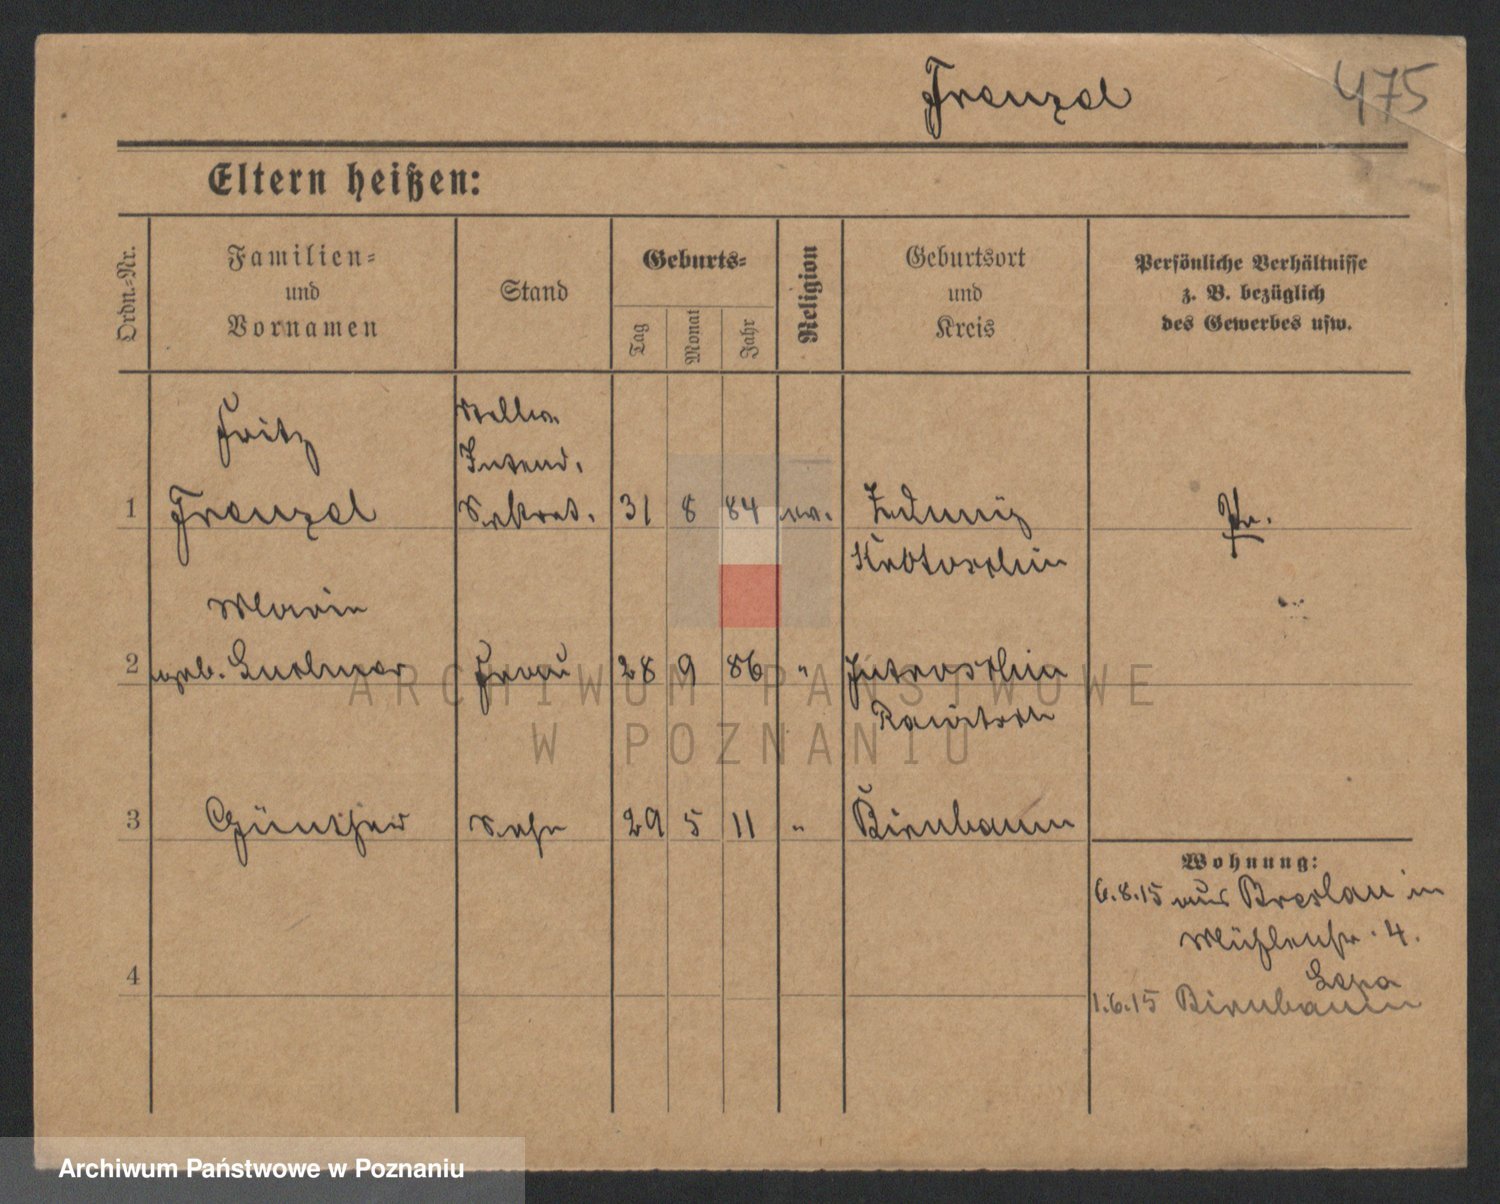 Frenzel 475
Eltern heißen:
Ordn.-Nr.
Familien-
und
Vornamen
Stand
Geburts-
Tag
Monat
Jahr
Religion
Geburtsort
und
Kreis
Persönliche Verhältnisse
z. B. bezüglich
des Gewerbes usw.
Fritz
Intend.
1 Frenzel Sekret. 31 8 84 ev. Zduny Pr.
Krotoschin
Marie
2 geb. Frau 28 9 86 " Jutroschin
Rawitsch
3 Günther Sohn 29 5 11 " Birnbaum
Wohnung:
6.8.15 aus Breslau in
Mühlenstr. 4.
4
1.6.15 Birnbaum
ARCHIWUM PAŃSTWOWE
W POZNANIU
Archiwum Państwowe w Poznaniu